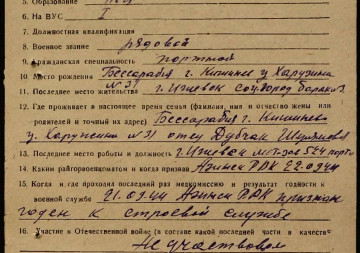 5. Образование
6. На ВУС I
7. Должностная квалификация
8. Военное звание рядовой
9. Гражданская специальность портной
10. Место рождения Бессарабия г. Кишинев у. Харузина
№ 31
11. Последнее место жительства г. Ижевск Соцгород барак
12. Где проживает в настоящее время семья (фамилия, имя и отчество жены или
родителей и точный их адрес) Бессарабия г. Кишинев
у. Харузина № 31 отец Дубчак
13. Последнее место работы и должность г. Ижевск 524
14. Каким райгорвоенкоматом и когда призван Азинск РВК 22.
15. Когда и где проходил последний раз медкомиссию и результат годности к
военной службе 21. Азинск РВК признан
годен к строевой службе
16. Участие в Отечественной войне (в составе какой последней части и в качестве
Не участвовал